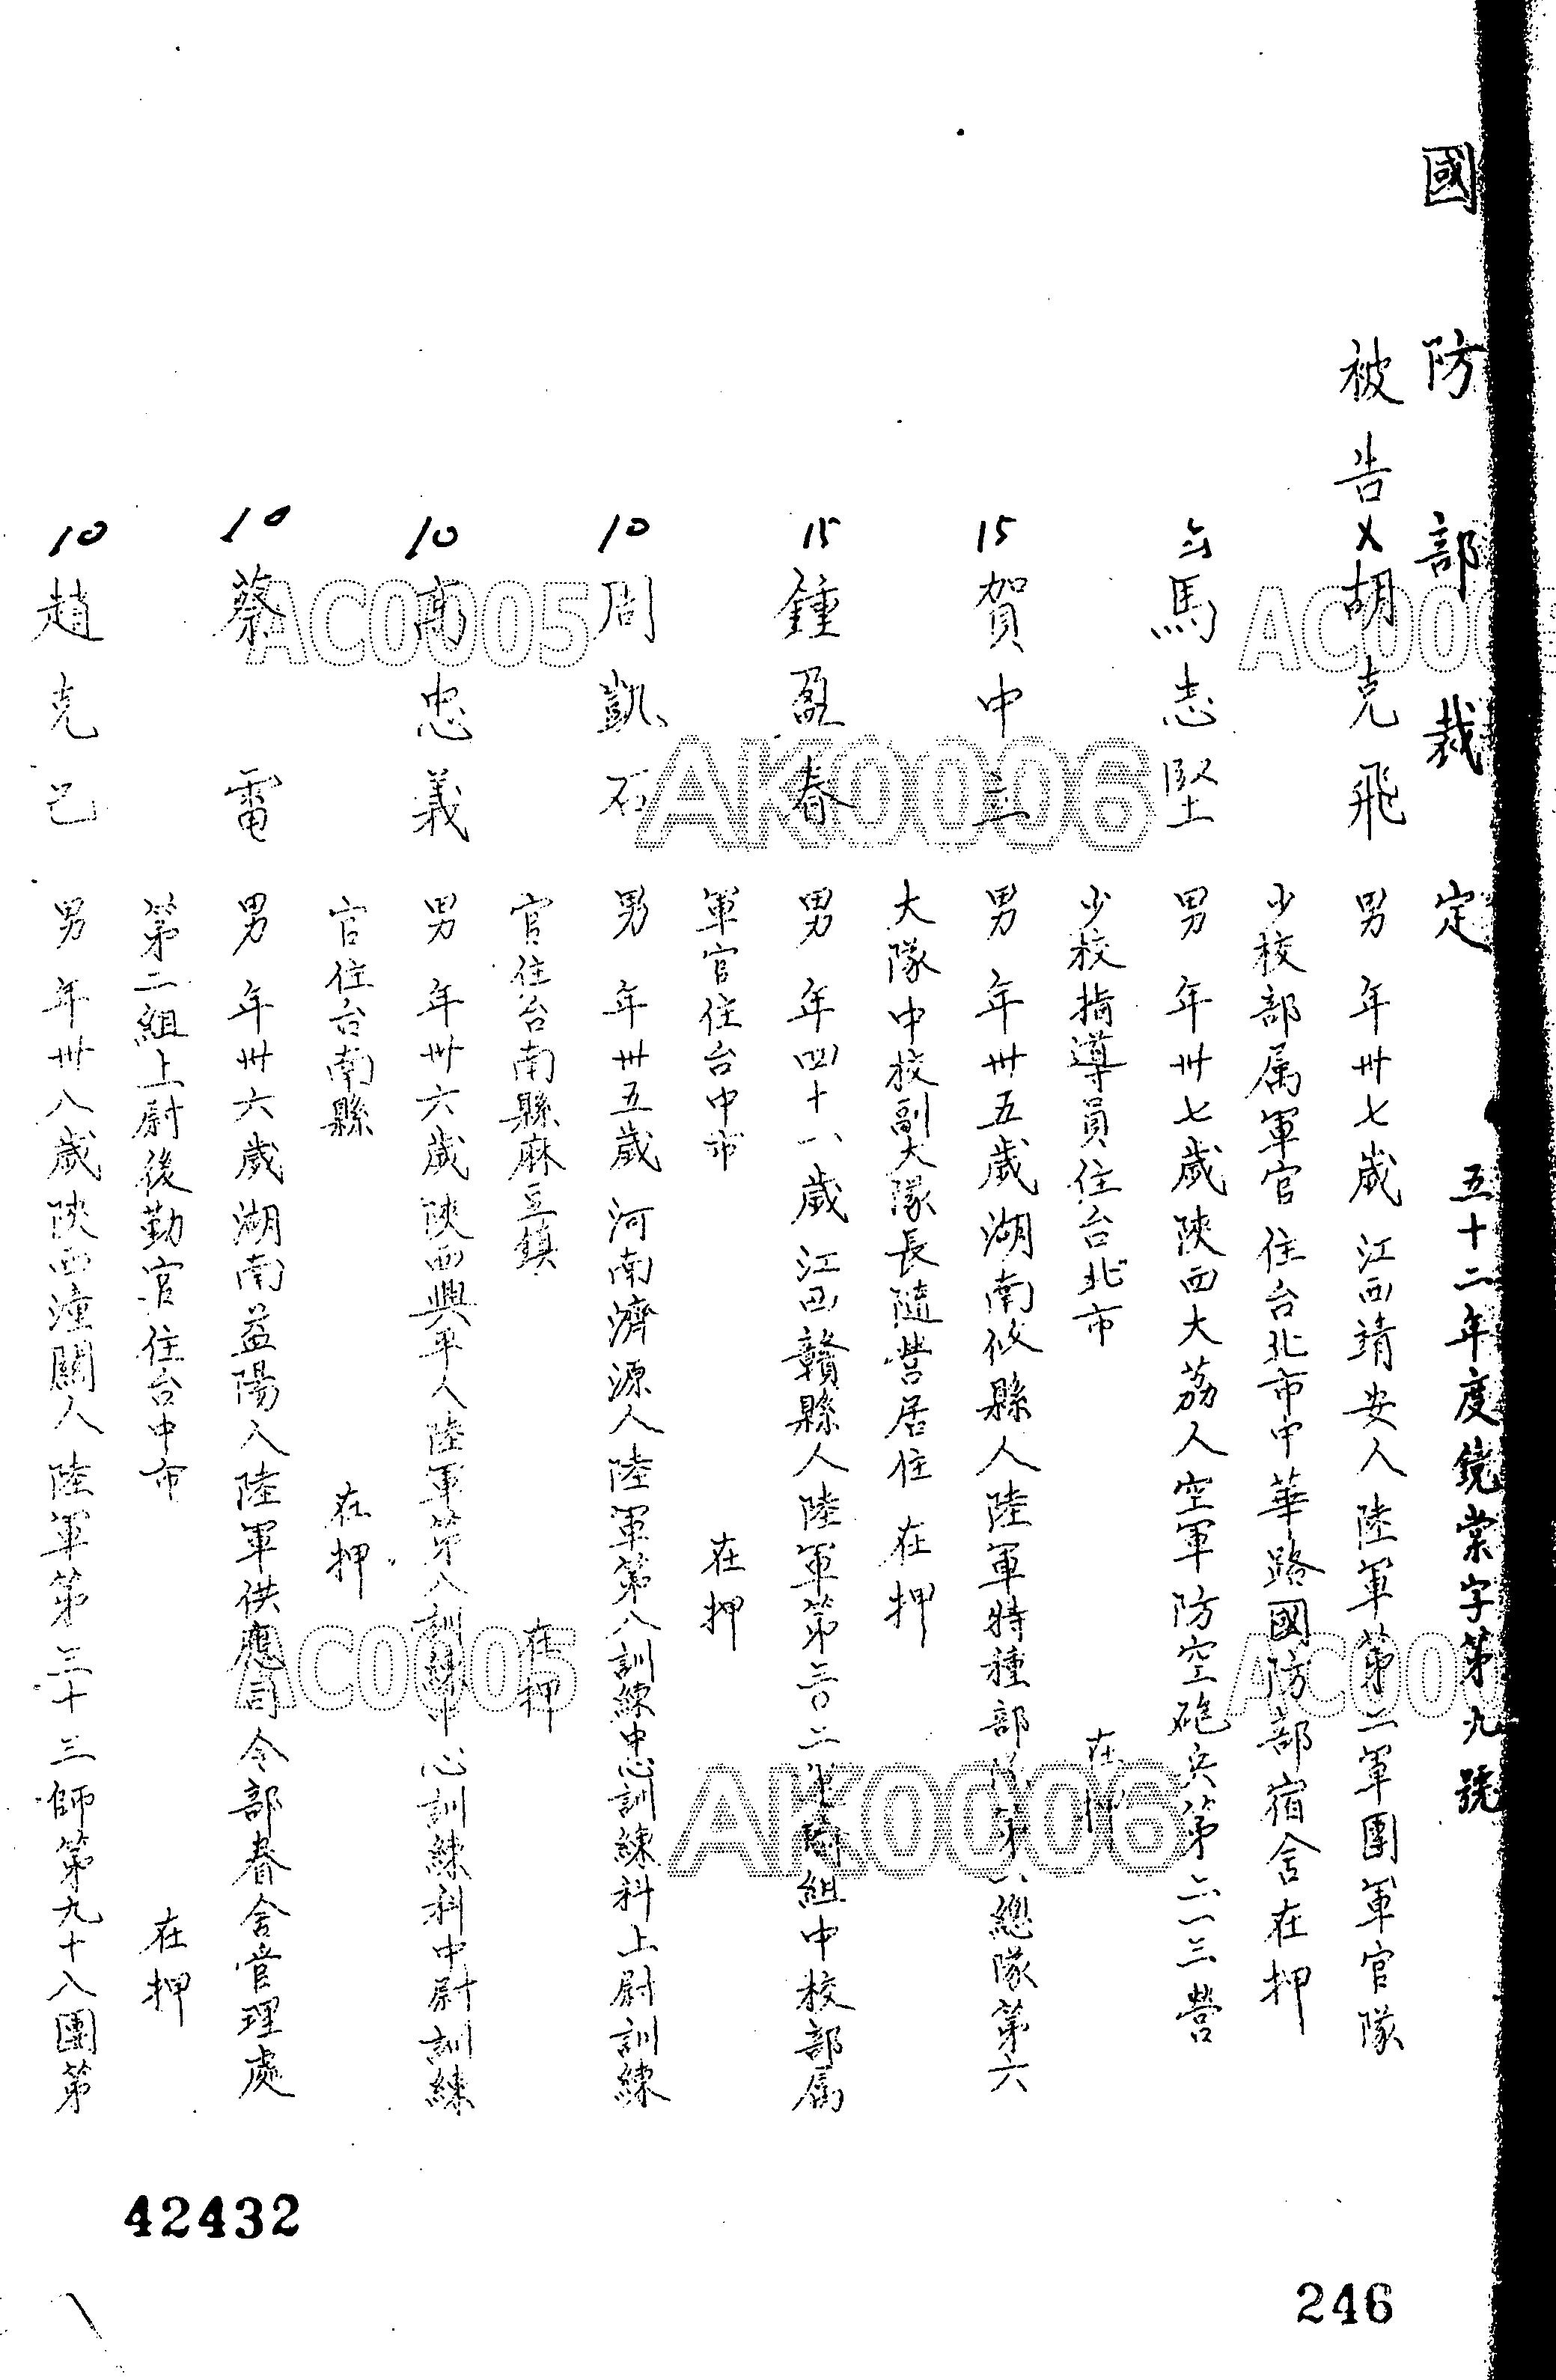 國防部裁定 五十二年度鏡棠字第九號
被告X胡克飛 男 年卅七歲 江西靖安人陸軍第二軍團軍官隊
少校部属軍官 住台北市中華路國防部宿舍在押
馬志堅 男 年卅七歲陝西大荔人空軍防空砲兵第二一三營
少校指導員住台北市 在押
15賀中立 男 年卅五歲湖南攸縣人陸軍特種部隊第八總隊第六
大隊中校副大隊長隨營居住 在押
15鍾盈春 男 年四十八歲 江西贛縣人陸軍第三〇二 組中校部属
軍官住台中市 在押
10周凱石 男 年卅五歲 河南濟源人陸軍第八訓練中心訓練科上尉訓練
官住台南縣麻豆鎮 在押
10高忠義 男 年卅六歲陝西興平人陸軍第八訓練中心訓練科中尉訓練
官住台南縣 在押
10蔡電 男 年卅六歲湖南益陽人陸軍供應司令部眷舍管理處
第二組上尉後勤官住台中市 在押
10趙克己 男 年卅八歲陝西潼關人陸軍第三十三師第九十八團第
42432
246
AC0005
AC000
AK0006
AC0005
AC00
AK0006